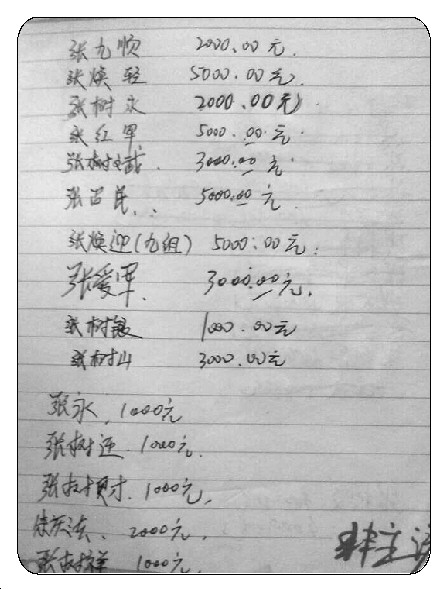 张九顺 2000.00元.
张焕轻 5000.00元.
张树永 2000.00元
张红军 5000.00元
张树武 3000.00元
张召民. 5000.00元
张焕迎(九组) 5000.00元.
张爱军. 3000.00元.
张树银 1000.00元
张树山 3000.00元
张永. 1000元
张树迎 1000元.
张树财. 1000元.
2000元.
张树祥 1000元.